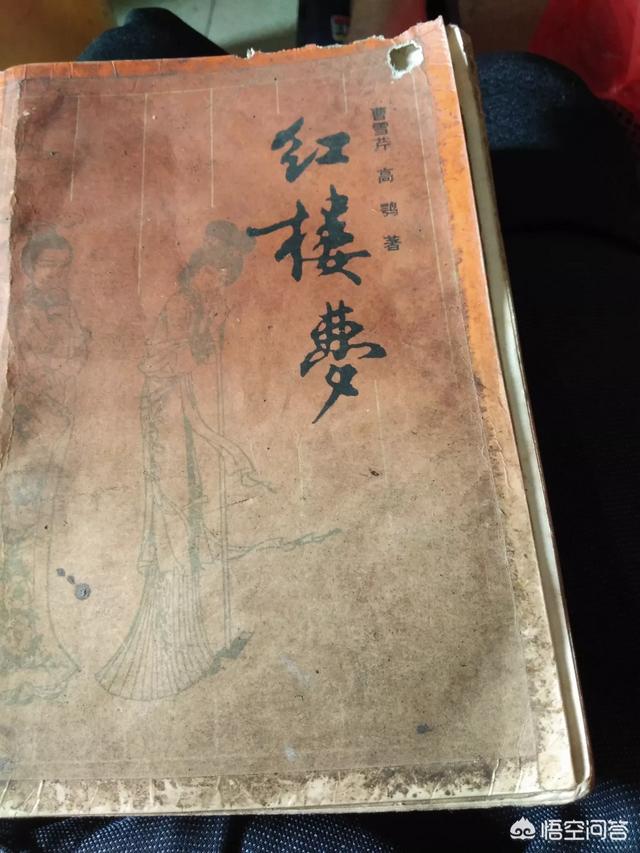 曹雪芹 高鹗 著
红楼梦
悟空问答